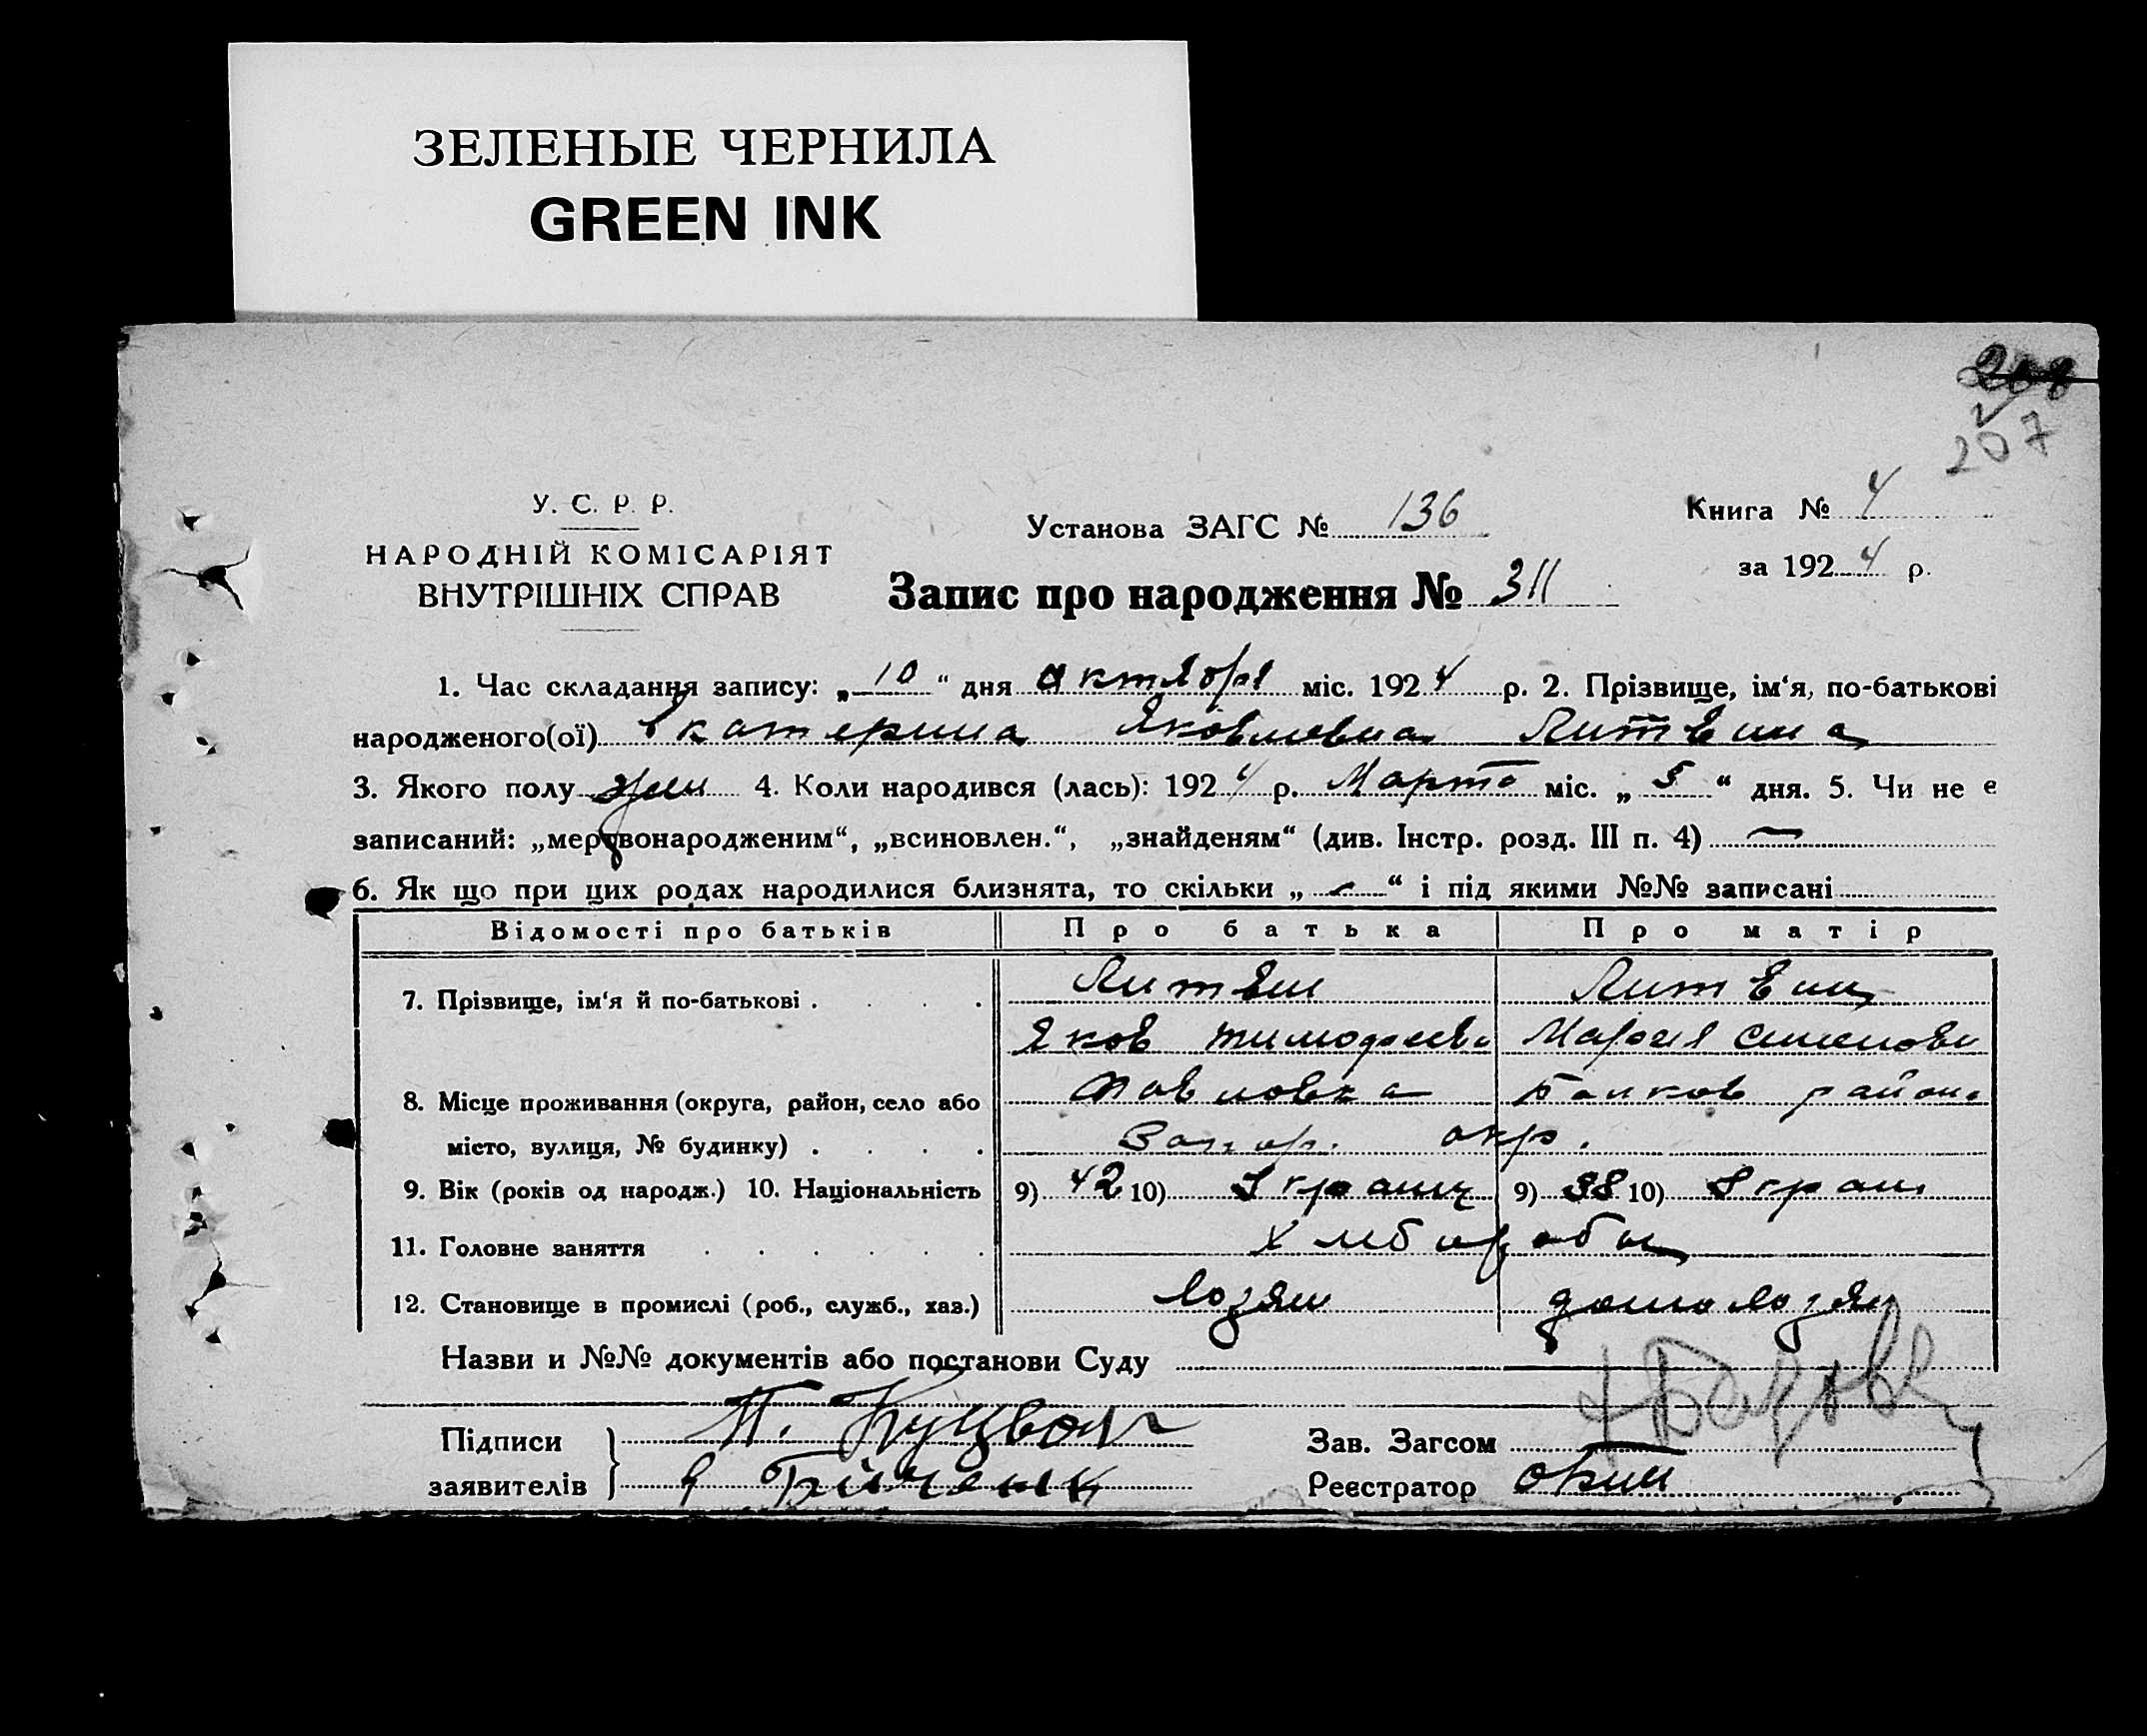 ЗЕЛЕНЫЕ ЧЕРНИЛА
GREEN INK
208
207
У. С. Р. Р.
НАРОДНІЙ КОМІСАРІЯТ
ВНУТРІШНІХ СПРАВ
Установа ЗАГС № 136
Книга № 4
за 1924 р.
Запис про народження № 311
1. Час складання запису: „10“ дня октября міс. 1924 р. 2. Прізвище, ім‘я, по-батькові
народженого(ої) Екатерина Яковлевна Литвина
3. Якого полу жен 4. Коли народився (лась): 1924 р. Марта міс. „5“ дня. 5. Чи не є
записаний: „мертвонародженим“, „всиновлен.“, „знайденям“ (див. Інстр. розд. III п. 4) —
6. Як що при цих родах народилися близнята, то скільки „ — “ і під якими №№ записані
Відомості про батьків Про батька Про матір
7. Прізвище, ім‘я й по-батькові . . . . Литвин Литвин
Яков Тимофеев Мария Семенов
8. Місце проживання (округа, район, село або Павловка район
місто, вулиця, № будинку) . . . . Запор. окр.
9. Вік (років од народж.) 10. Національність 9) 42 10) Украинц 9) 38 10) Украин
11. Головне заняття . . . . . . Хлеборобы
12. Становище в промислі (роб., служб., хаз.) хозяин домохозяй
Назви и №№ документів або постанови Суду
Підписи П. Куцвол
заявителів
Зав. Загсом
Реєстратор